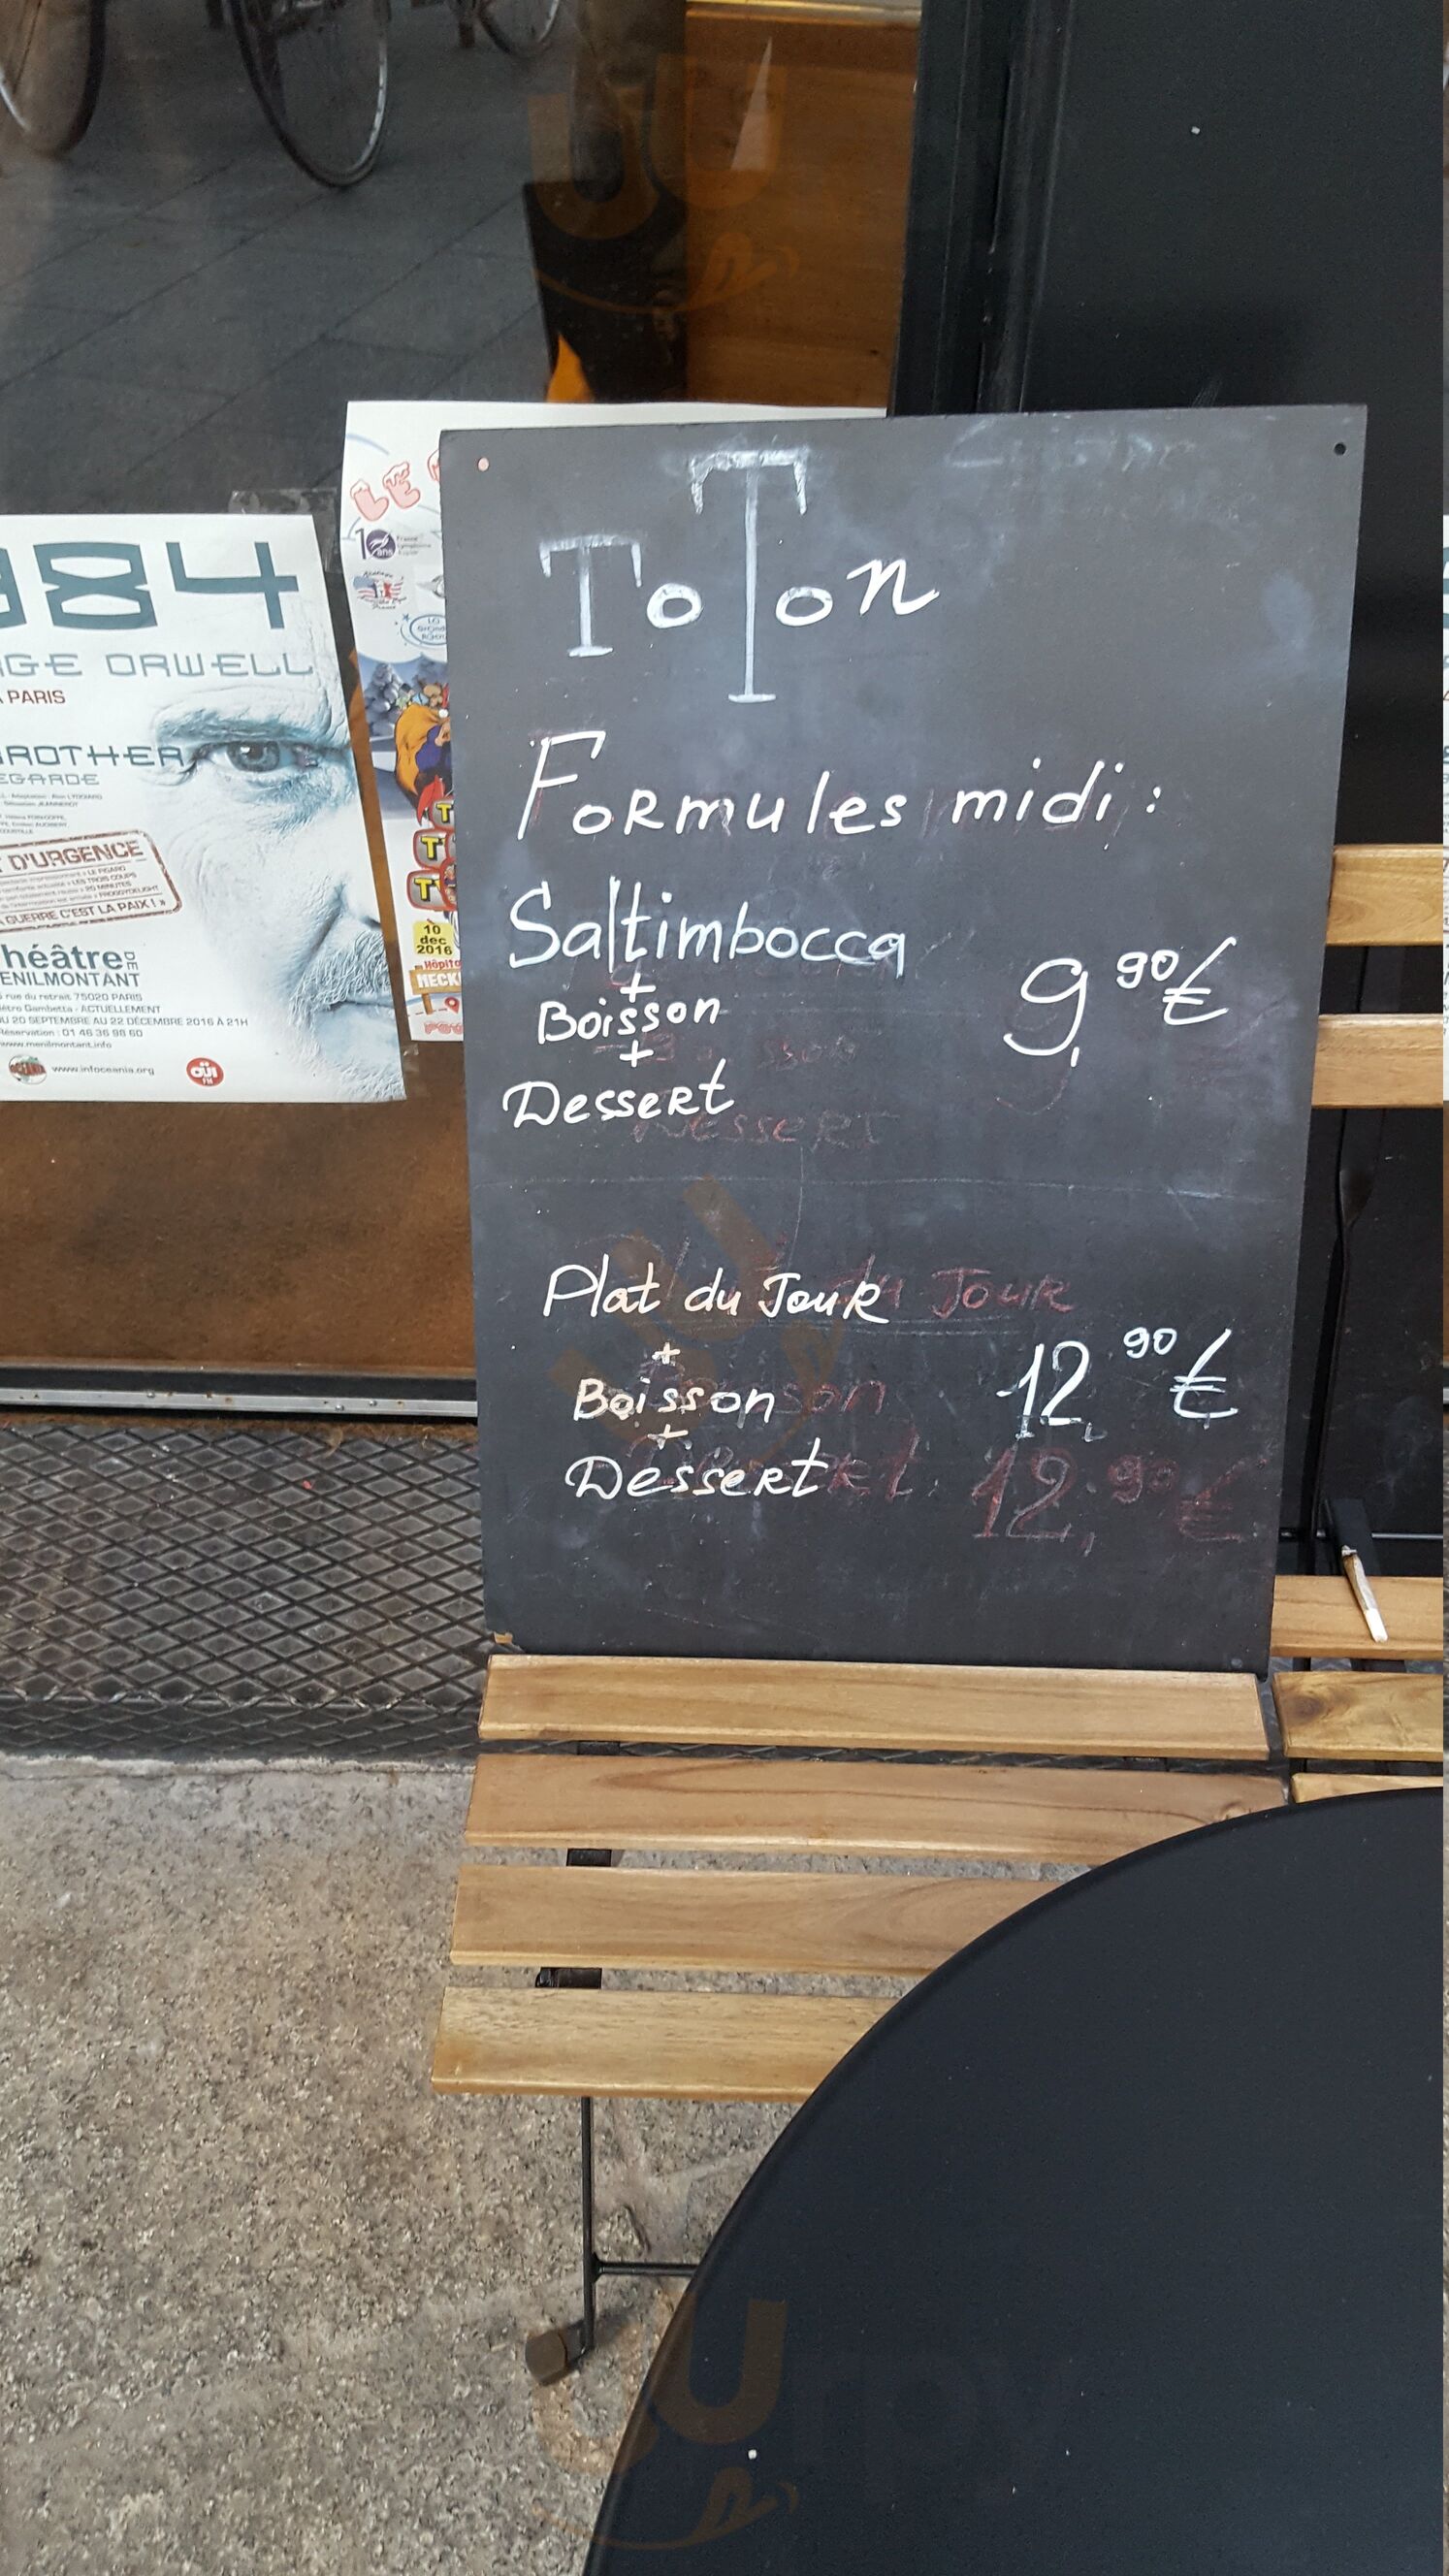 ToTon
Formules midi :
Saltimbocca
+
Boisson
+
Dessert
9,90 €
Plat du Jour
+
Boisson
+
Dessert
12,90 €
Plat du Jour
Boisson
Dessert
12,90 €
984
GE ORWELL
PARIS
ROTHER
EGARDE
D'URGENCE
GUERRE C'EST LA PAIX ! »
héâtre DE
ENILMONTANT
rue du retrait 75020 PARIS
étro Gambetta - ACTUELLEMENT
U 20 SEPTEMBRE AU 22 DÉCEMBRE 2016 À 21H
Réservation : 01 46 36 98 60
www.menilmontant.info
www.infoceania.org
OÜI
FM
LE
10
ans
10
dec
2016
Hôpita
NECK